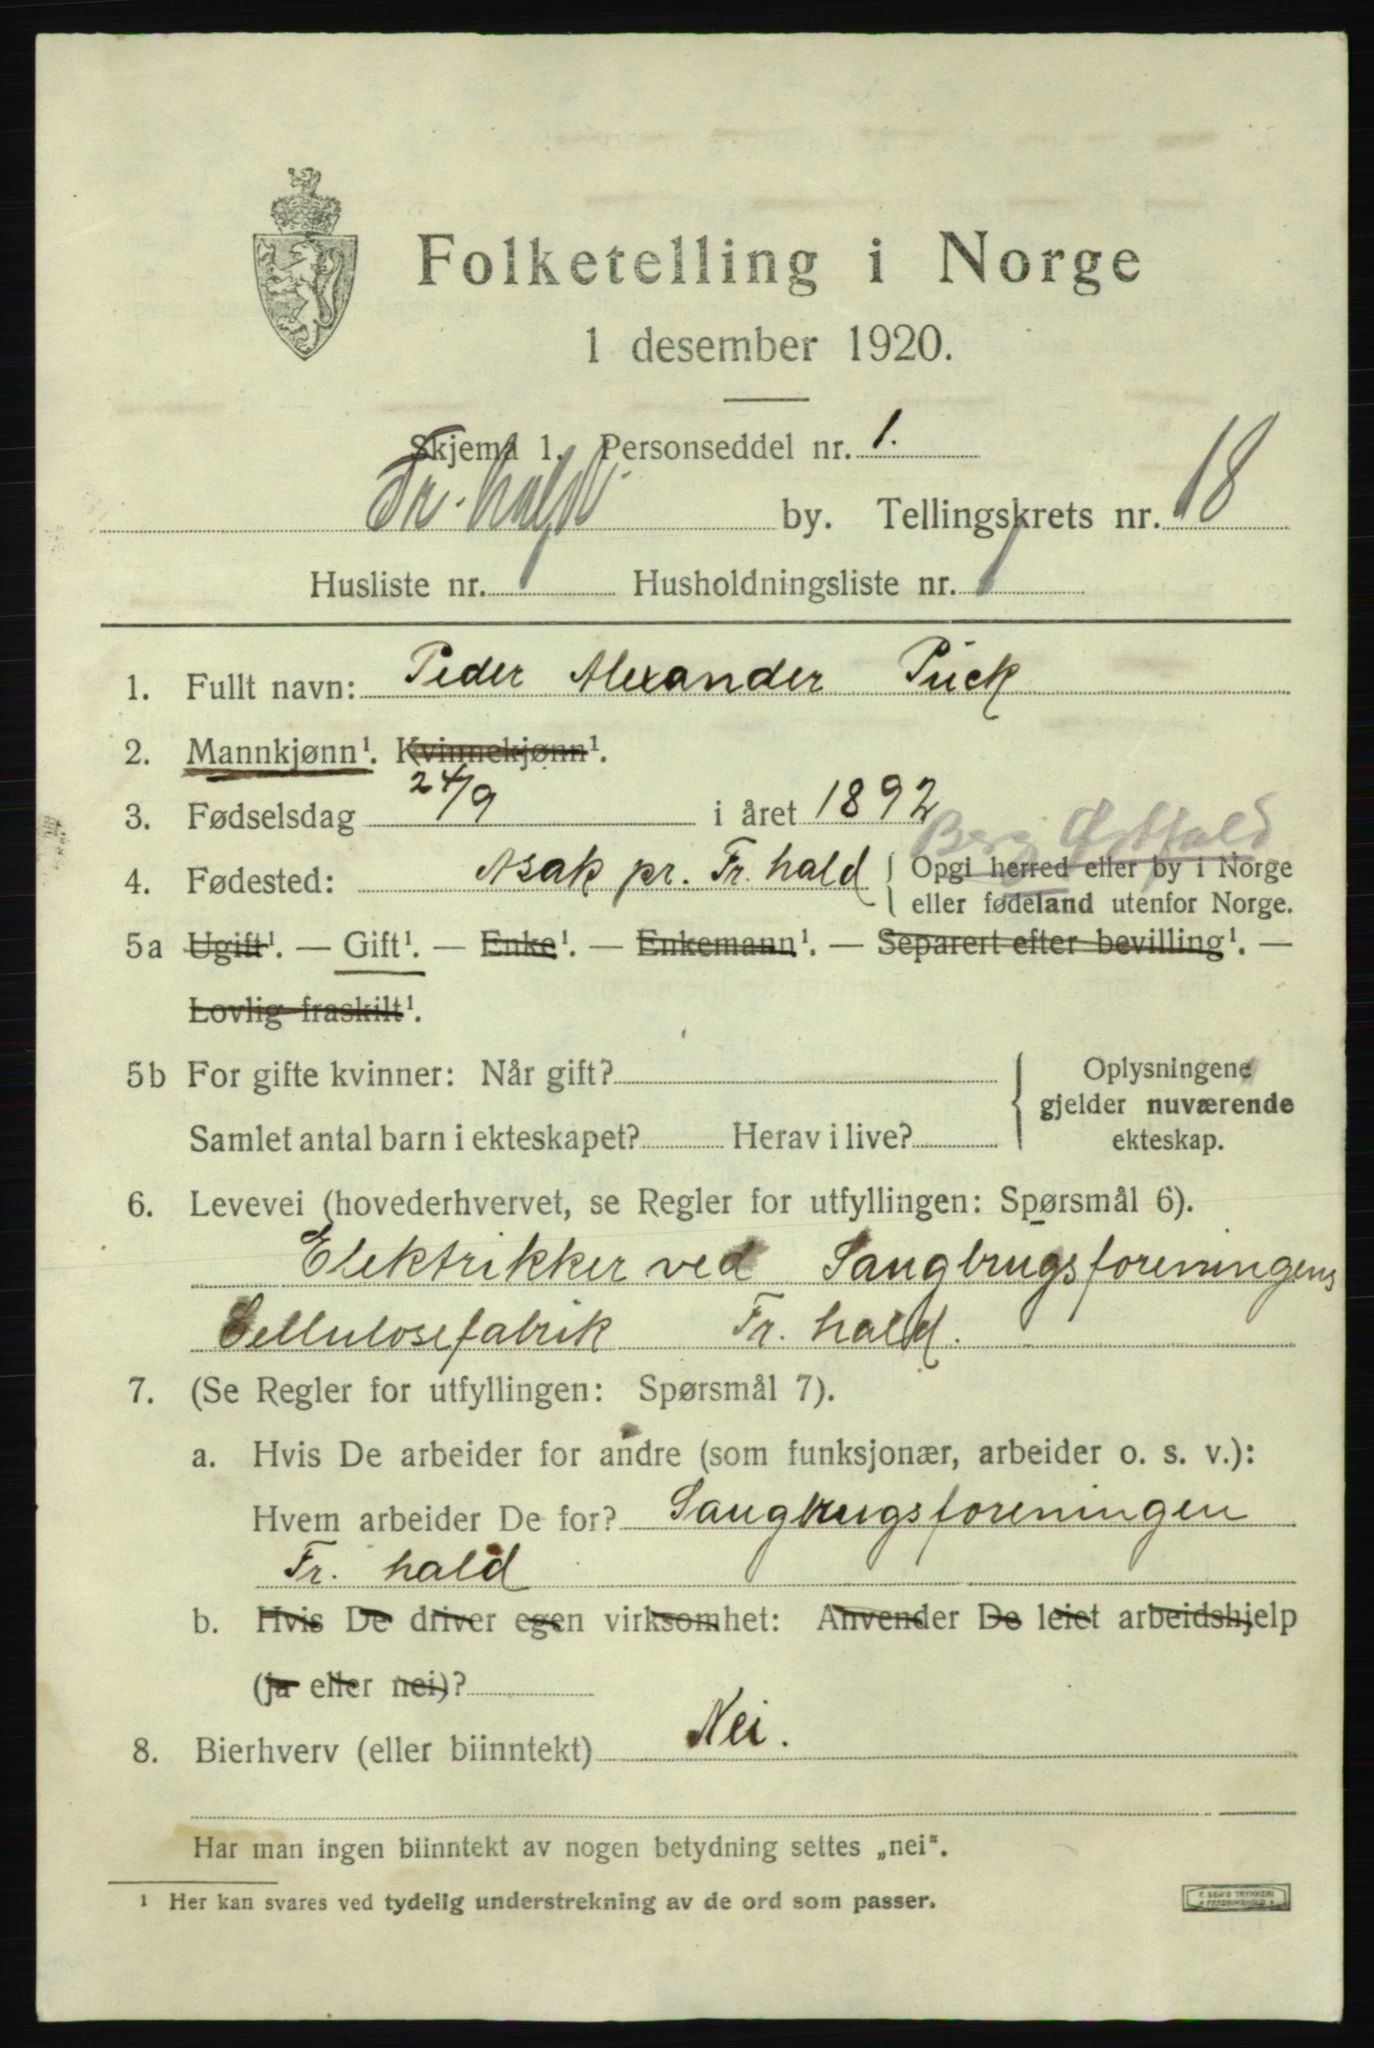 Folketelling i Norge
1 desember 1920.
Skjema 1. Personseddel nr. 1.
Fr. hald by. Tellingskrets nr. 18
Husliste nr. 1 Husholdningsliste nr. 1
1. Fullt navn: Peder Alexander Pück
2. Mannkjønn¹. Kvinnekjønn¹.
3. Fødselsdag 24/9 i året 1892
Berg Østfold
4. Fødested: Asak pr. Fr. hald { Opgi herred eller by i Norge
eller fødeland utenfor Norge.
5a Ugift¹. — Gift¹. — Enke¹. — Enkemann¹. — Separert efter bevilling¹. —
Lovlig fraskilt¹.
5b For gifte kvinner: Når gift? { Oplysningene
gjelder nuværende
Samlet antal barn i ekteskapet? Herav i live? ekteskap.
6. Levevei (hovederhvervet, se Regler for utfyllingen: Spørsmål 6).
Elektrikker ved Saugbrugsforeningens
Cellulosefabrik Fr. hald.
7. (Se Regler for utfyllingen: Spørsmål 7).
a. Hvis De arbeider for andre (som funksjonær, arbeider o. s. v.):
Hvem arbeider De for? Saugbrugsforeningen
Fr. hald
b. Hvis De driver egen virksomhet: Anvender De leiet arbeidshjelp
(ja eller nei)?
8. Bierhverv (eller biinntekt) Nei.
Har man ingen biinntekt av nogen betydning settes „nei".
¹ Her kan svares ved tydelig understrekning av de ord som passer.